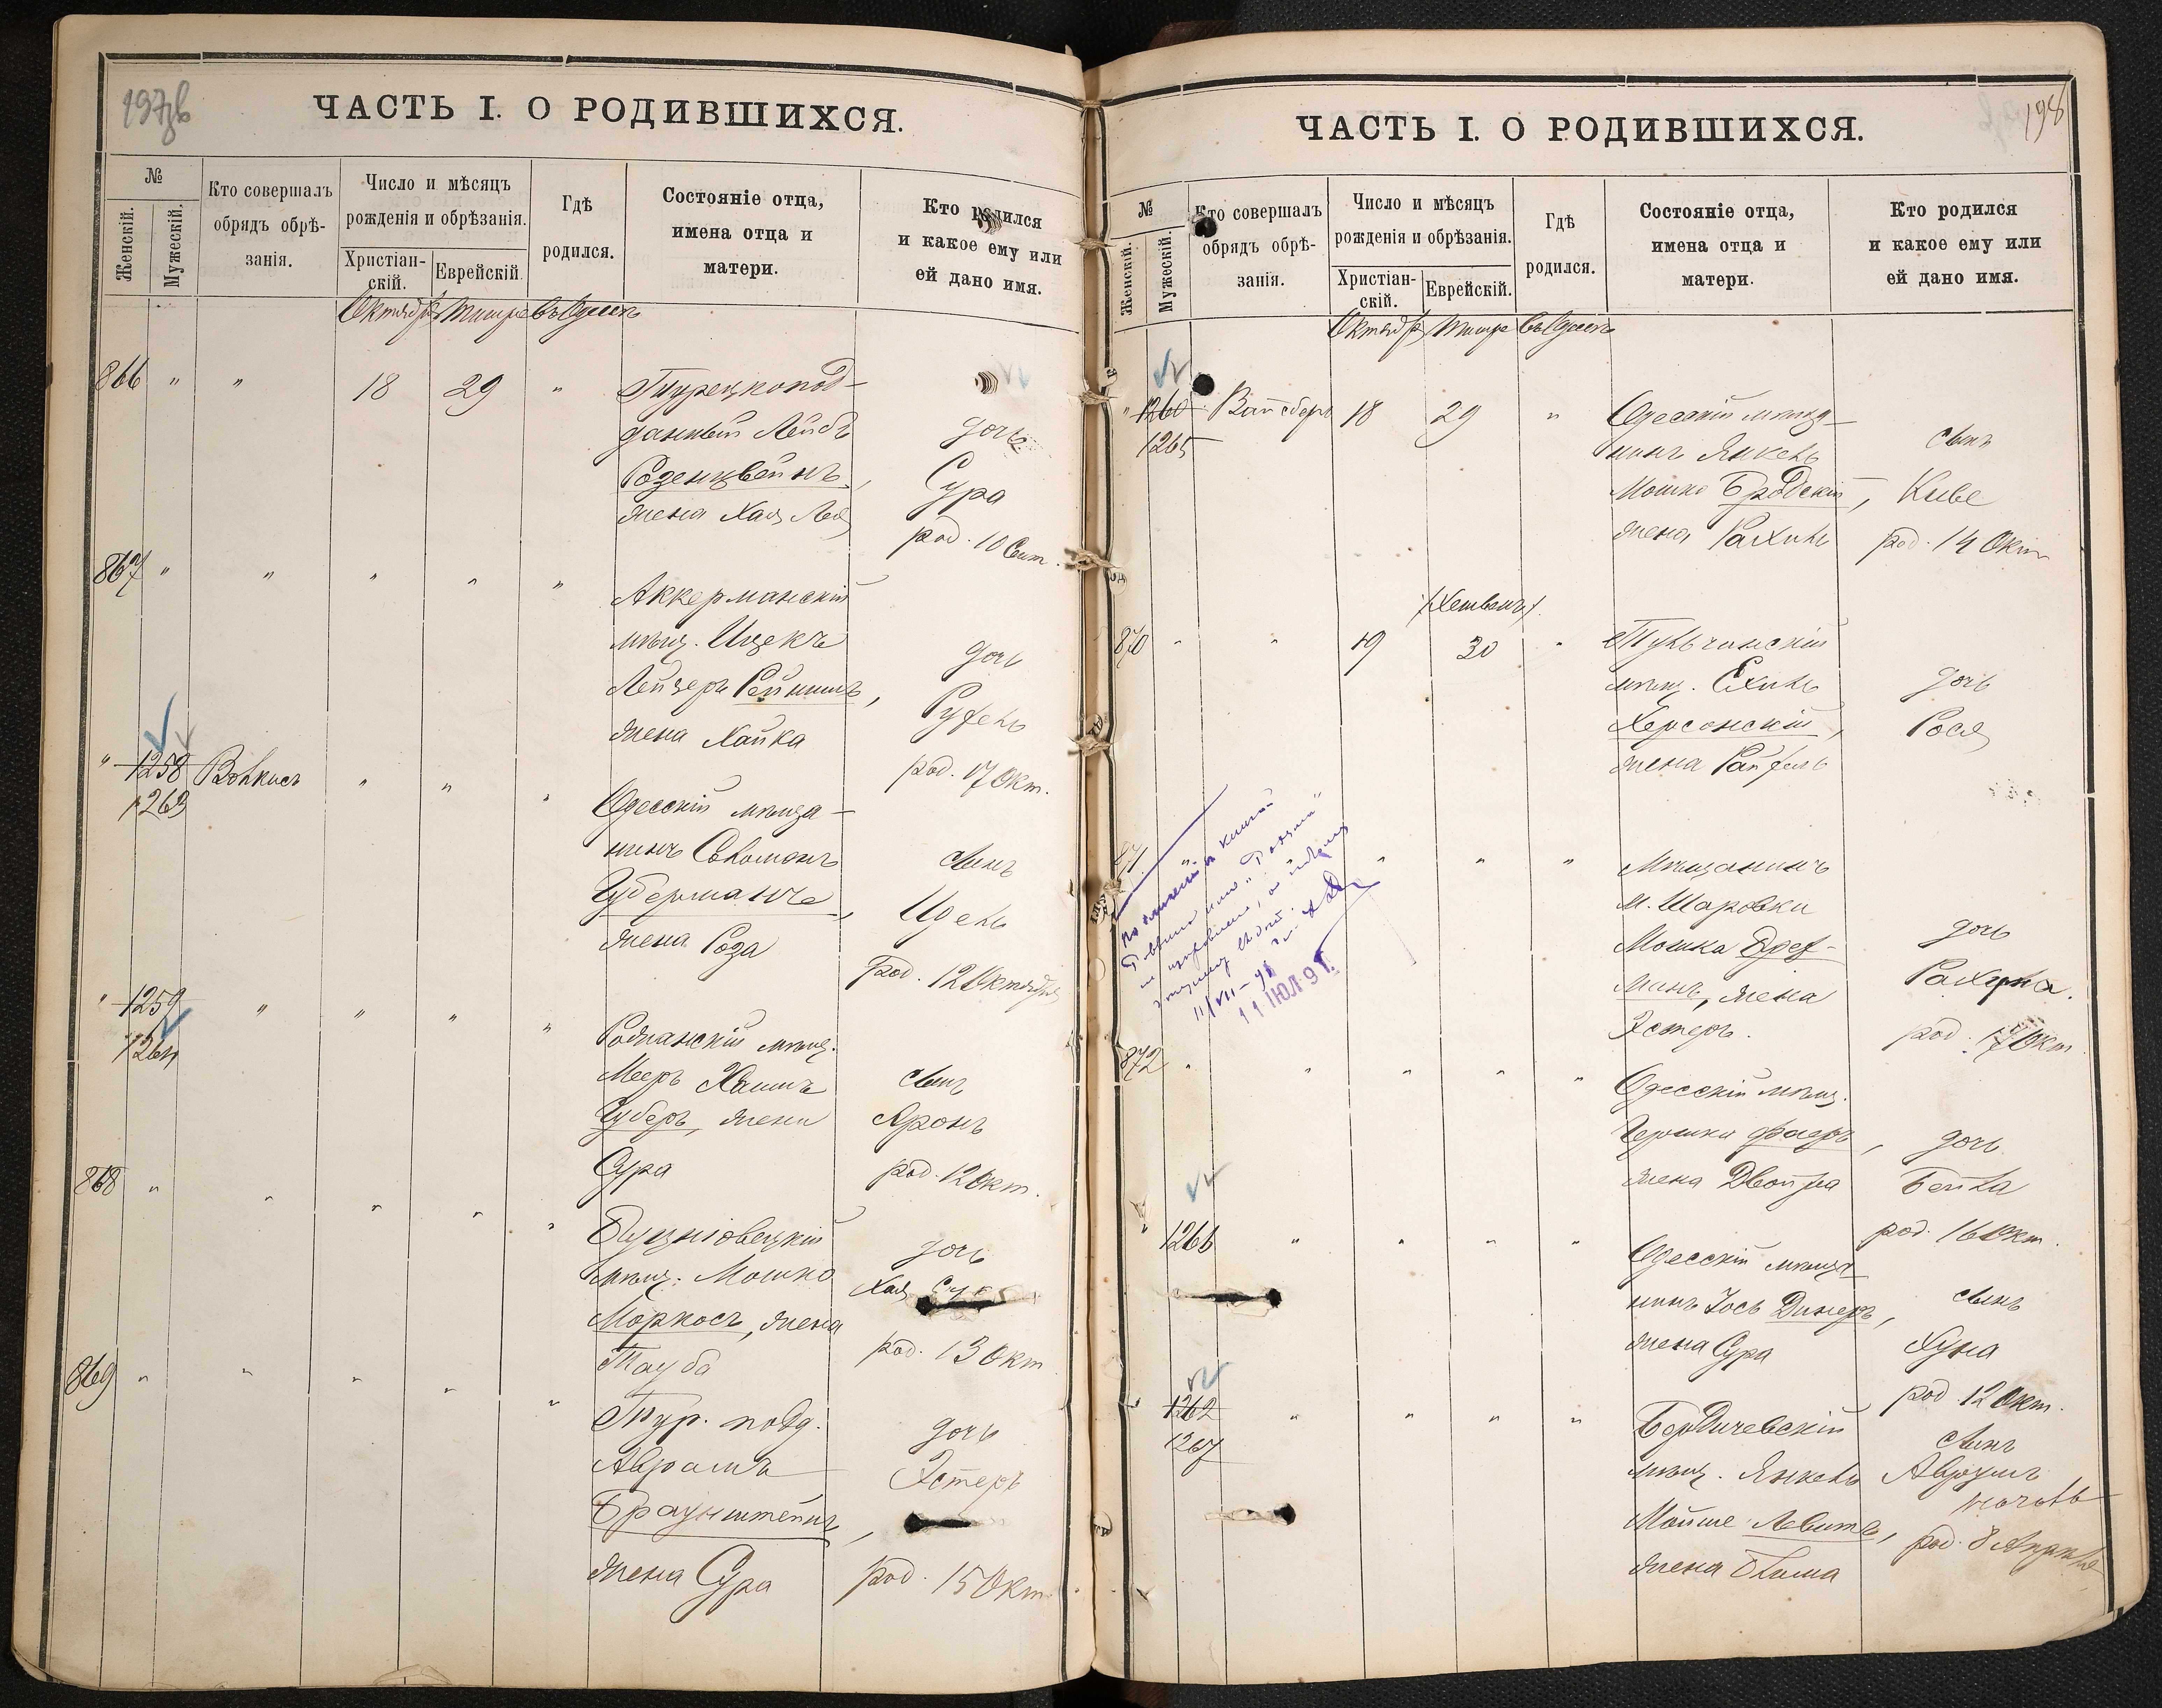 ЧАСТЬ I. О РОДИВШИХСЯ.
№
Женскій.
Мужескій.
Кто совершалъ
обрядъ обрѣ-
занія.
Число и мѣсяцъ
рожденія и обрѣзанія.
Христіан-
скій.
Еврейскій.
Гдѣ
родился.
Состояніе отца,
имена отца и
матери.
Кто родился
и какое ему или
ей дано имя.
Октября Тишре Въ Одессѣ
866 " " 18 29 " Турецкопод-
данный Лейбъ
Розенцвейнъ,
жена Хая Лея
дочь
Сура
род. 10 Сент.
867 " " " " " Аккерманскій
мѣщ. Ицекъ
Лейзеръ
жена Хайка
дочь
род. 17 Окт.
" 1258 " " "
1263
Одесскій мѣща-
нинъ Соломонъ
Губерманъ,
жена Роза
сынъ
Идель
род. 12 Октября
" 1259 " " " "
1264
мѣщ.
Мееръ Хаимъ
Губеръ, жена
Сура
сынъ
Аронъ
род. 12 Окт.
868 " " " " "
мѣщ. Мошко
Моркосъ, жена
Тауба
дочь
Хая
род. 13 Окт
869 " " " " " Тур. подд.
Аврамъ
Браунштейнъ,
жена Сура
дочь
Эстеръ
род. 15 Окт.
198
ЧАСТЬ I. О РОДИВШИХСЯ.
№
Женскій.
Мужескій.
Кто совершалъ
обрядъ обрѣ-
занія.
Число и мѣсяцъ
рожденія и обрѣзанія.
Христіан-
скій.
Еврейскій.
Гдѣ
родился.
Состояніе отца,
имена отца и
матери.
Кто родился
и какое ему или
ей дано имя.
Октября Тишре Въ Одессѣ
" 1260 Вайсберъ 18 29 " Одесскій мѣща-
1265
нинъ Янкель
Мошко Бродскій,
жена Рахиль
сынъ
Киве
род. 14 Окт
870 " " 19 30 " Тульчинскій
мѣщ. Ехиль
Херсонскій,
жена Райзель
дочь
Рося
871 " " " Мѣщанинъ
м. Шаровки
Мошка
жена
Эстеръ.
дочь
род. 17 Окт.
11 ИЮЛ 91
872 " " " " " Одесскій мѣщ.
Гершко Фаеръ,
жена Двойра
дочь
Бейла
род. 16 Окт.
" 1266 " " " " Одесскій мѣща-
нинъ Іось Динеръ,
жена Сура
сынъ
Хуна
род. 12 Окт.
" 1262 " " " "
1267
Бердичевскій
мѣщ. Янкель
Мойше Левитъ,
жена Блима
сынъ
Аврумъ
род. 8 Апрѣля